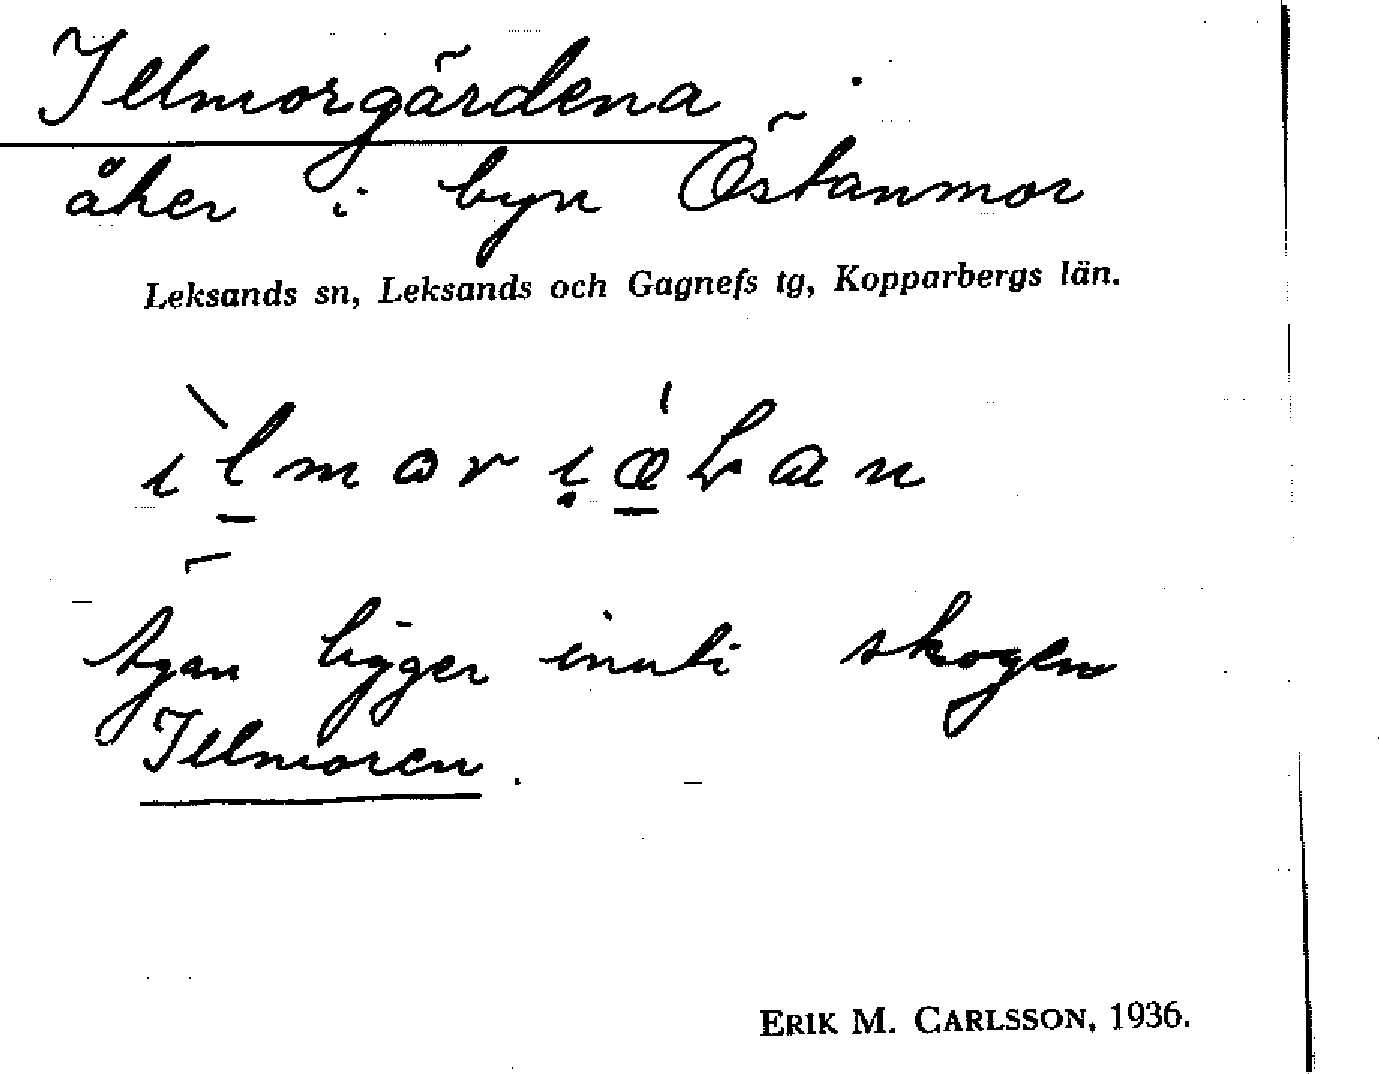 Illmorgärdena
åker i byn Östanmor
Leksands sn, Leksands och Gagnefs tg, Kopparbergs län.
ägan ligger inuti skogen
Illmoren.
ERIK M. CARLSSON, 1936.